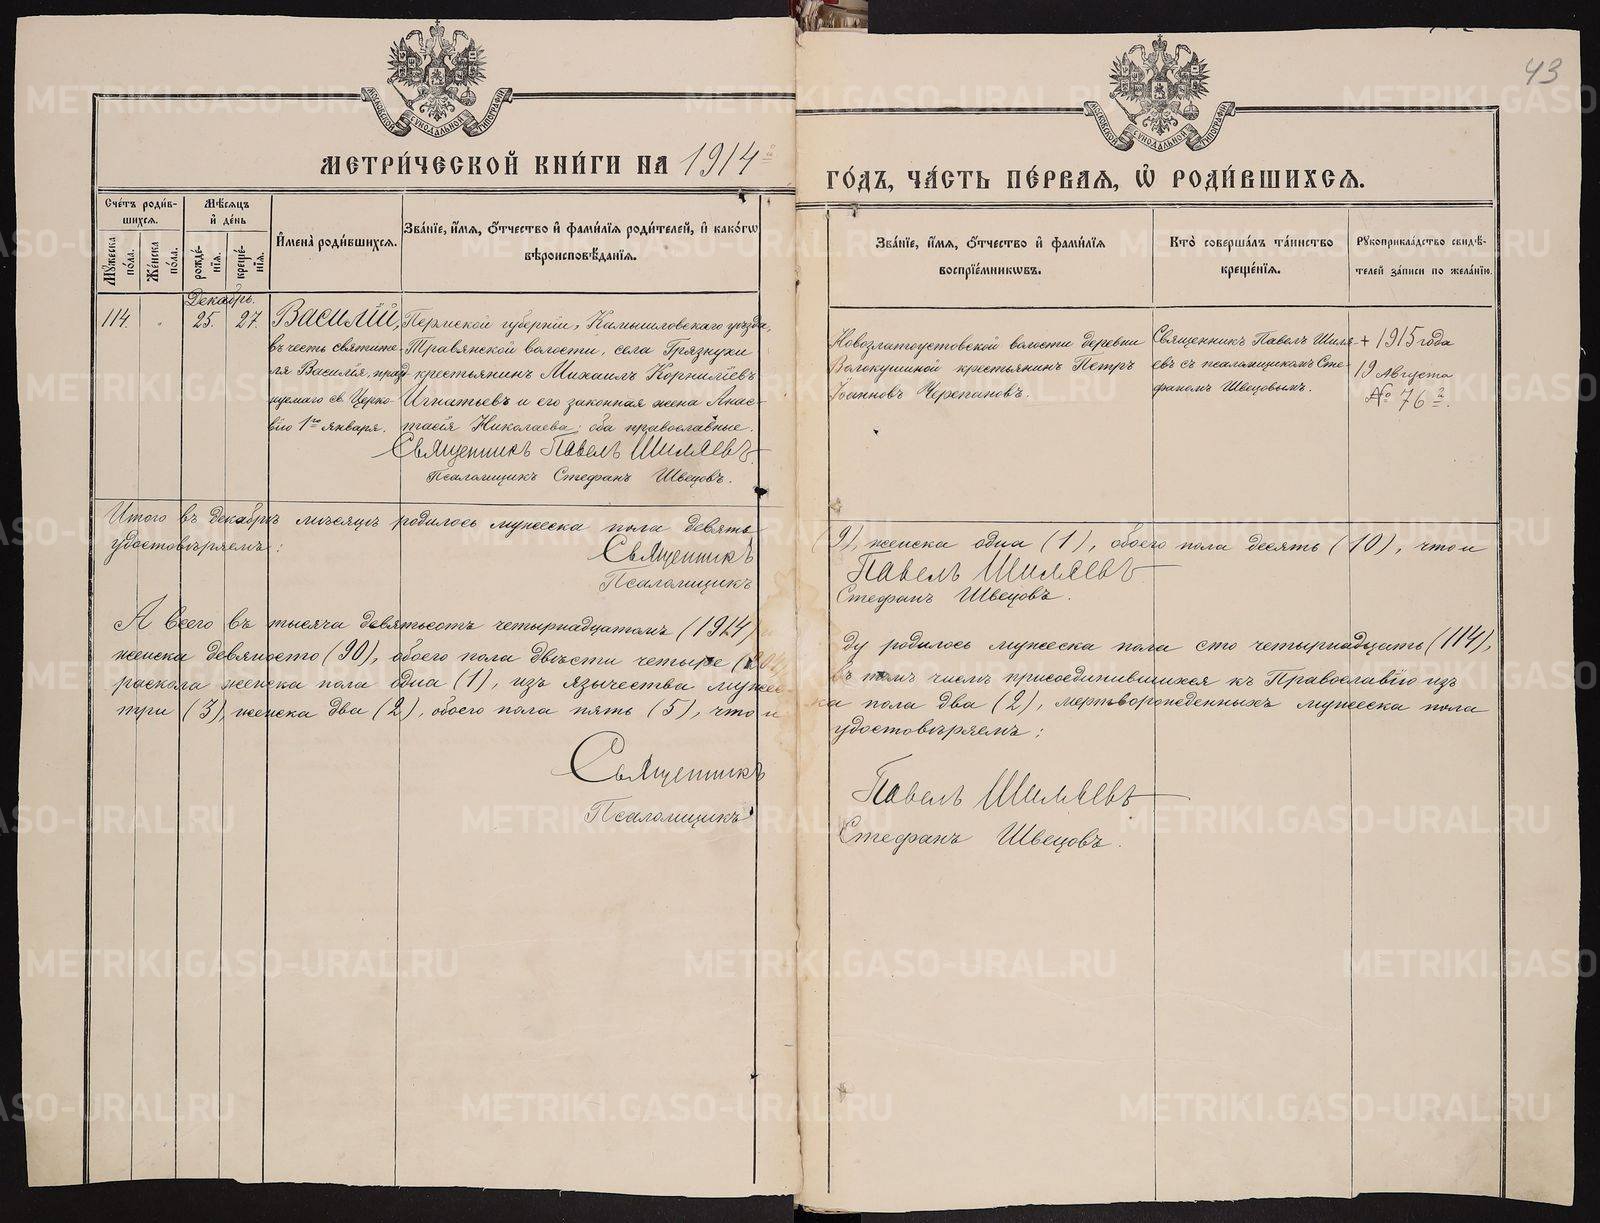 43
МОСКОВСКОЙ СѴНОДАЛЬНОЙ ТИПОГРАФІИ
МОСКОВСКОЙ СѴНОДАЛЬНОЙ ТИПОГРАФІИ
МЕТРИ́ЧЕСКОЙ КНИ́ГИ НА 1914 й
ГО́ДЪ, ЧА́СТЬ ПЕ́РВАѦ, Ѡ РОДИ́ВШИХСѦ.
Сче́тъ роди́в-
шихсѧ.
Мꙋ́жеска по́ла.
Же́нска по́ла.
Мѣ́сѧцъ
и҆ де́нь
рожде́-
нїѧ.
креще́-
нїѧ.
И҆мена̀ роди́вшихсѧ.
Зва́нїе, и҆́мѧ, ѻ҆́тчество и҆ фами́лїѧ роди́телей, и҆ како́гѡ
вѣроисповѣ́данїѧ.
Зва́нїе, и҆́мѧ, ѻ҆́тчество и҆ фами́лїѧ
воспрїе́мникѡвъ.
Кто̀ соверша́лъ та́инство
креще́нїѧ.
Рꙋкоприкла́дство свидѣ́-
телей за́писи по жела́нїю.
Декабрь.
114. 25. 27. Василій,
въ честь святите-
ля Василія, празд
нуемаго св. Церко-
вію 1го января.
Пермской губерніи, Камышловскаго уѣзда,
Травянской волости, села Грязнухи
крестьянинъ Михаилъ Корниліевъ
Игнатьевъ и его законная жена Анас-
тасія Николаева; оба православные.
Священникъ Павелъ Шиляевъ
Псаломщикъ Стефанъ Швецовъ.
Новозлатоустовской волости деревни
Волокушиной крестьянинъ Петръ
Іоанновъ Черепановъ.
Священникъ Павелъ Шиля-
евъ съ псаломщикомъ Сте-
фаномъ Швецовымъ.
+ 1915 года
19 Августа
№ 76й.
Итого въ Декабрѣ мѣсяцѣ родилось мужеска пола девять
(9), женска одна (1), обоего пола десять (10), что и
удостовѣряемъ:
Священникъ Павелъ Шиляевъ
Псаломщикъ Стефанъ Швецовъ.
А всего въ тысяча девятьсотъ четырнадцатомъ (1914)
ду родилось мужеска пола сто четырнадцать (114),
женска девяносто (90), обоего пола двѣсти четыре (204)
въ томъ числѣ присоединившихся къ Православію изъ
раскола женска пола одна (1), изъ язычества мужес
ка пола два (2), мертворожденныхъ мужеска пола
три (3), женска два (2), обоего пола пять (5), что и
удостовѣряемъ:
Священникъ Павелъ Шиляевъ
Псаломщикъ Стефанъ Швецовъ.
METRIKI.GASO-URAL.RU